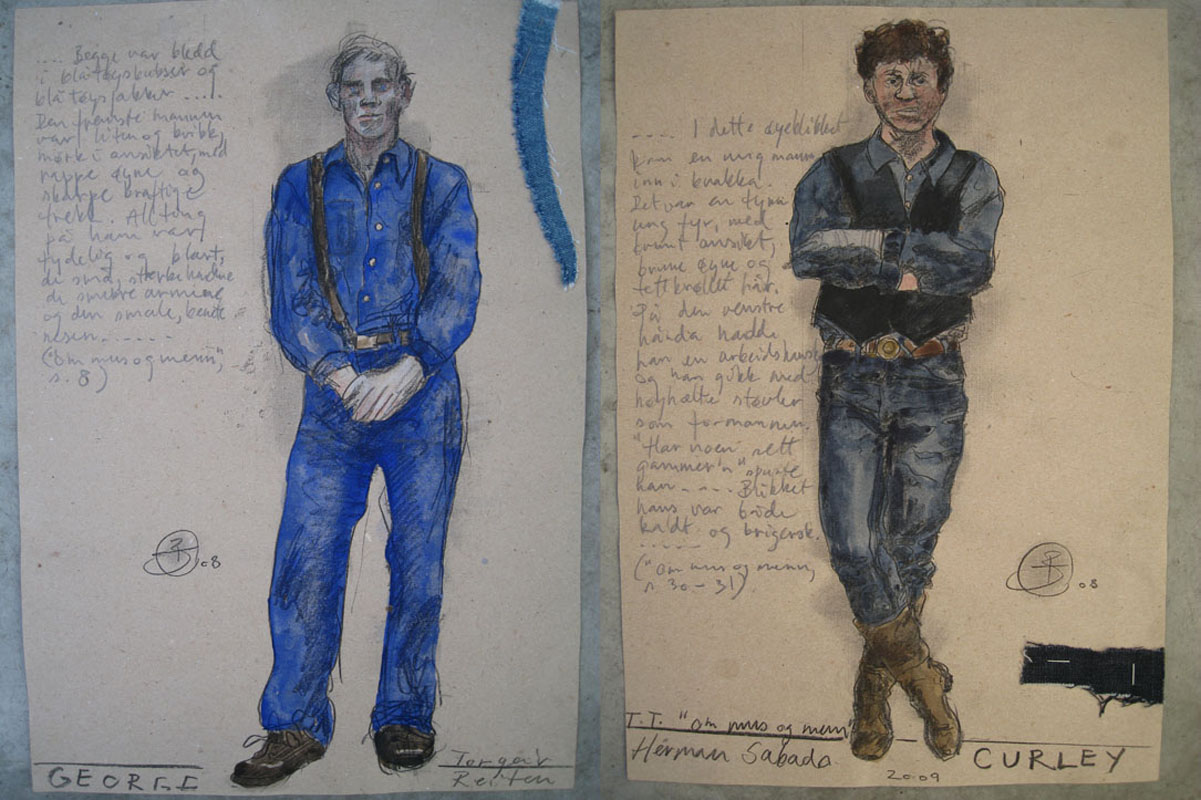 .... Begge var kledd
i blåtøysbukser og
blåtøysjakker ....
Den fremste mannen
var liten og kvikk,
mørk i ansiktet, med
rappe øyne og
skarpe kraftige
trekk. Allting
på ham var
tydelig og klart,
de små, sterke hendene
de smekre armene
og den smale, bente
nesen......
("Om mus og menn",
s. 8)
08
GEORGE
Torgeir
Reiten
.... I dette øyeblikket
kom en ung mann
inn i brakka.
Det var en tynn
ung fyr, med
brunt ansikt,
brune øyne og
tettkrøllet hår.
På den venstre
hånda hadde
han en arbeidshanske
og han gikk med
høyhælte støvler
som formannen.
"Har noen sett
gammer'n" spurte
han.... Blikket
hans var både
kaldt og brigersk.
.....
("Om mus og menn,
s. 30-31)
08
T.T. "Om mus og menn"
Herman Sabado
20.09
CURLEY